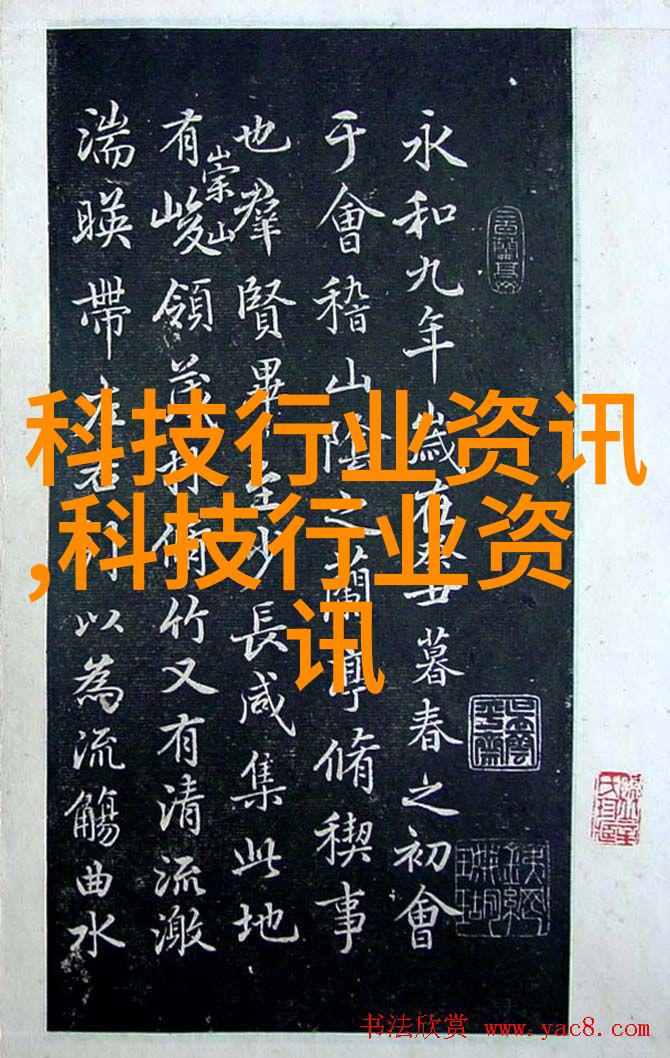 永和九年歲在癸丑暮春之初會
于會稽山陰之蘭亭脩稧事
也羣賢畢至少長咸集此地
有崇山峻領茂林脩竹又有清流激
湍暎帶左右引以為流觴曲水
科技行业资讯
,科技行业资
讯
书法欣赏 www.yac8.com